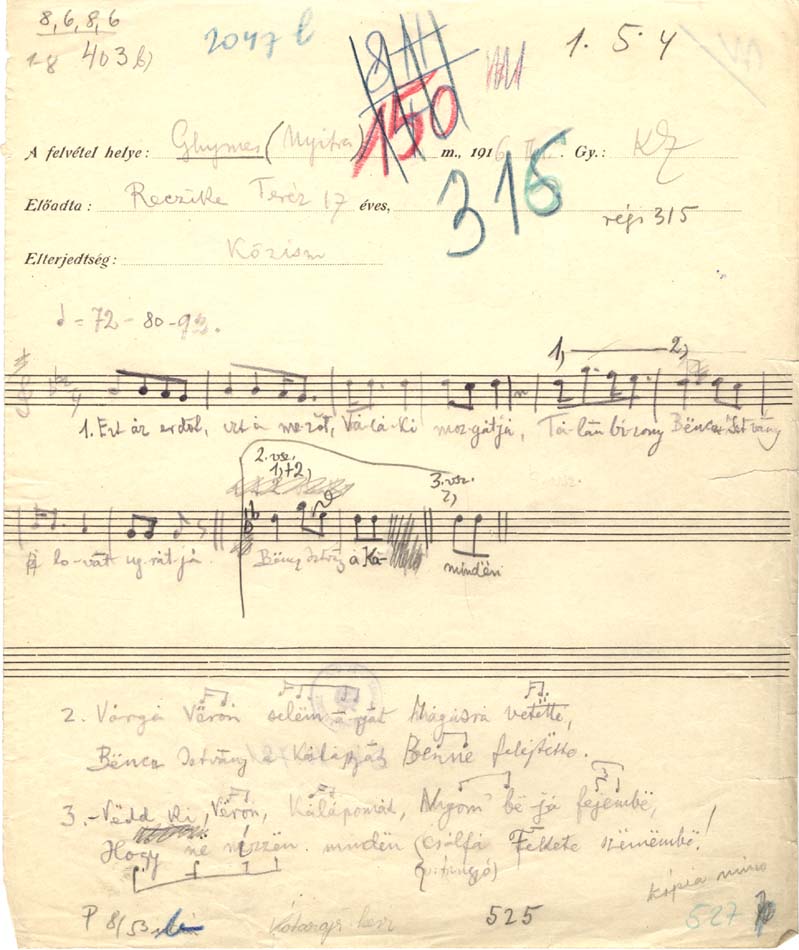 8,6,8,6
1-8 403 b)
2047 b
1. 5. 4
VA
150
A felvétel helye: Ghymes (Nyitra) m., 1916 Gy.: KZ
316
Előadta: Reczika Teréz 17 éves,
régi 315
Elterjedtség: Közism
= 72 - 80 - 92.
1, 2,
1. Ezt áz erdőt, ezt á mezőt, Vá-lá-ki moz-gátjá, Tá-lán bi-zony Bëncz Istvány
2. vsz. 1,+2,
3. vsz. 2,
Á lo-vát ug-rát-já. Bëncz Istvány á Ká- mindën
2. Várgá Vërón selëm á-gyát Mágásrá vetëtte,
Bëncz Istvány á Kálápját Benne felejtëtte.
3. - Vëdd ki, Vërón, Kálápomát, Nyomd bë já fejembë,
Hogy në nézzën mindën csálfá Fekete szëmëmbë!
kópia nincs
P 8/53
525
527